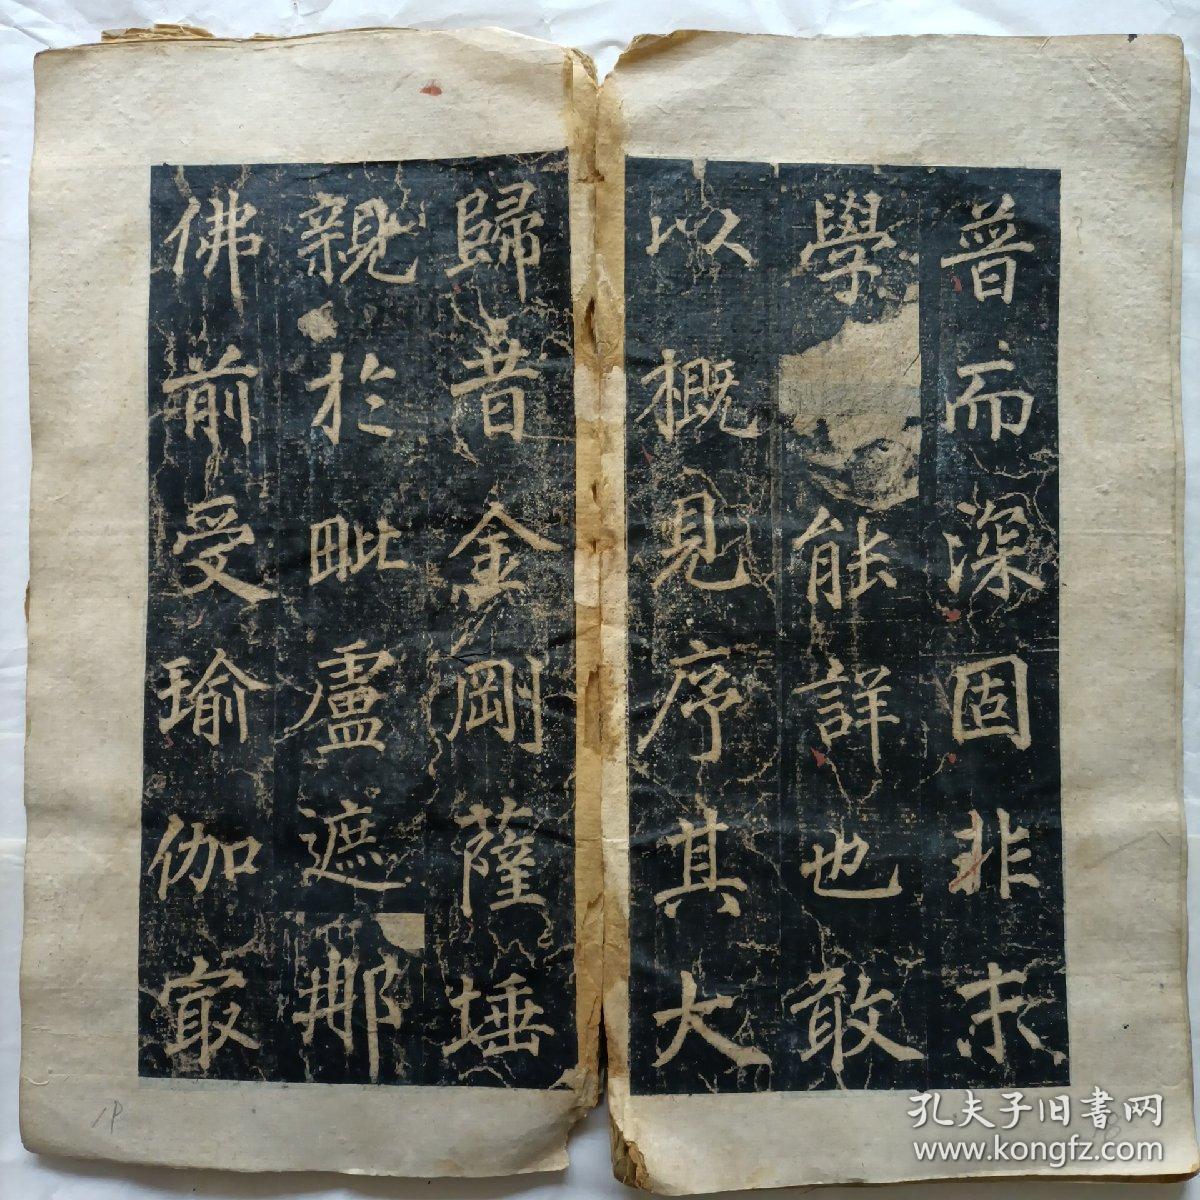 普而深固非末
學
能詳也敢
以概見序其大
歸昔金剛薩埵
親於毗盧遮那
佛前受瑜伽最
18
孔夫子旧書网
www.kongfz.com